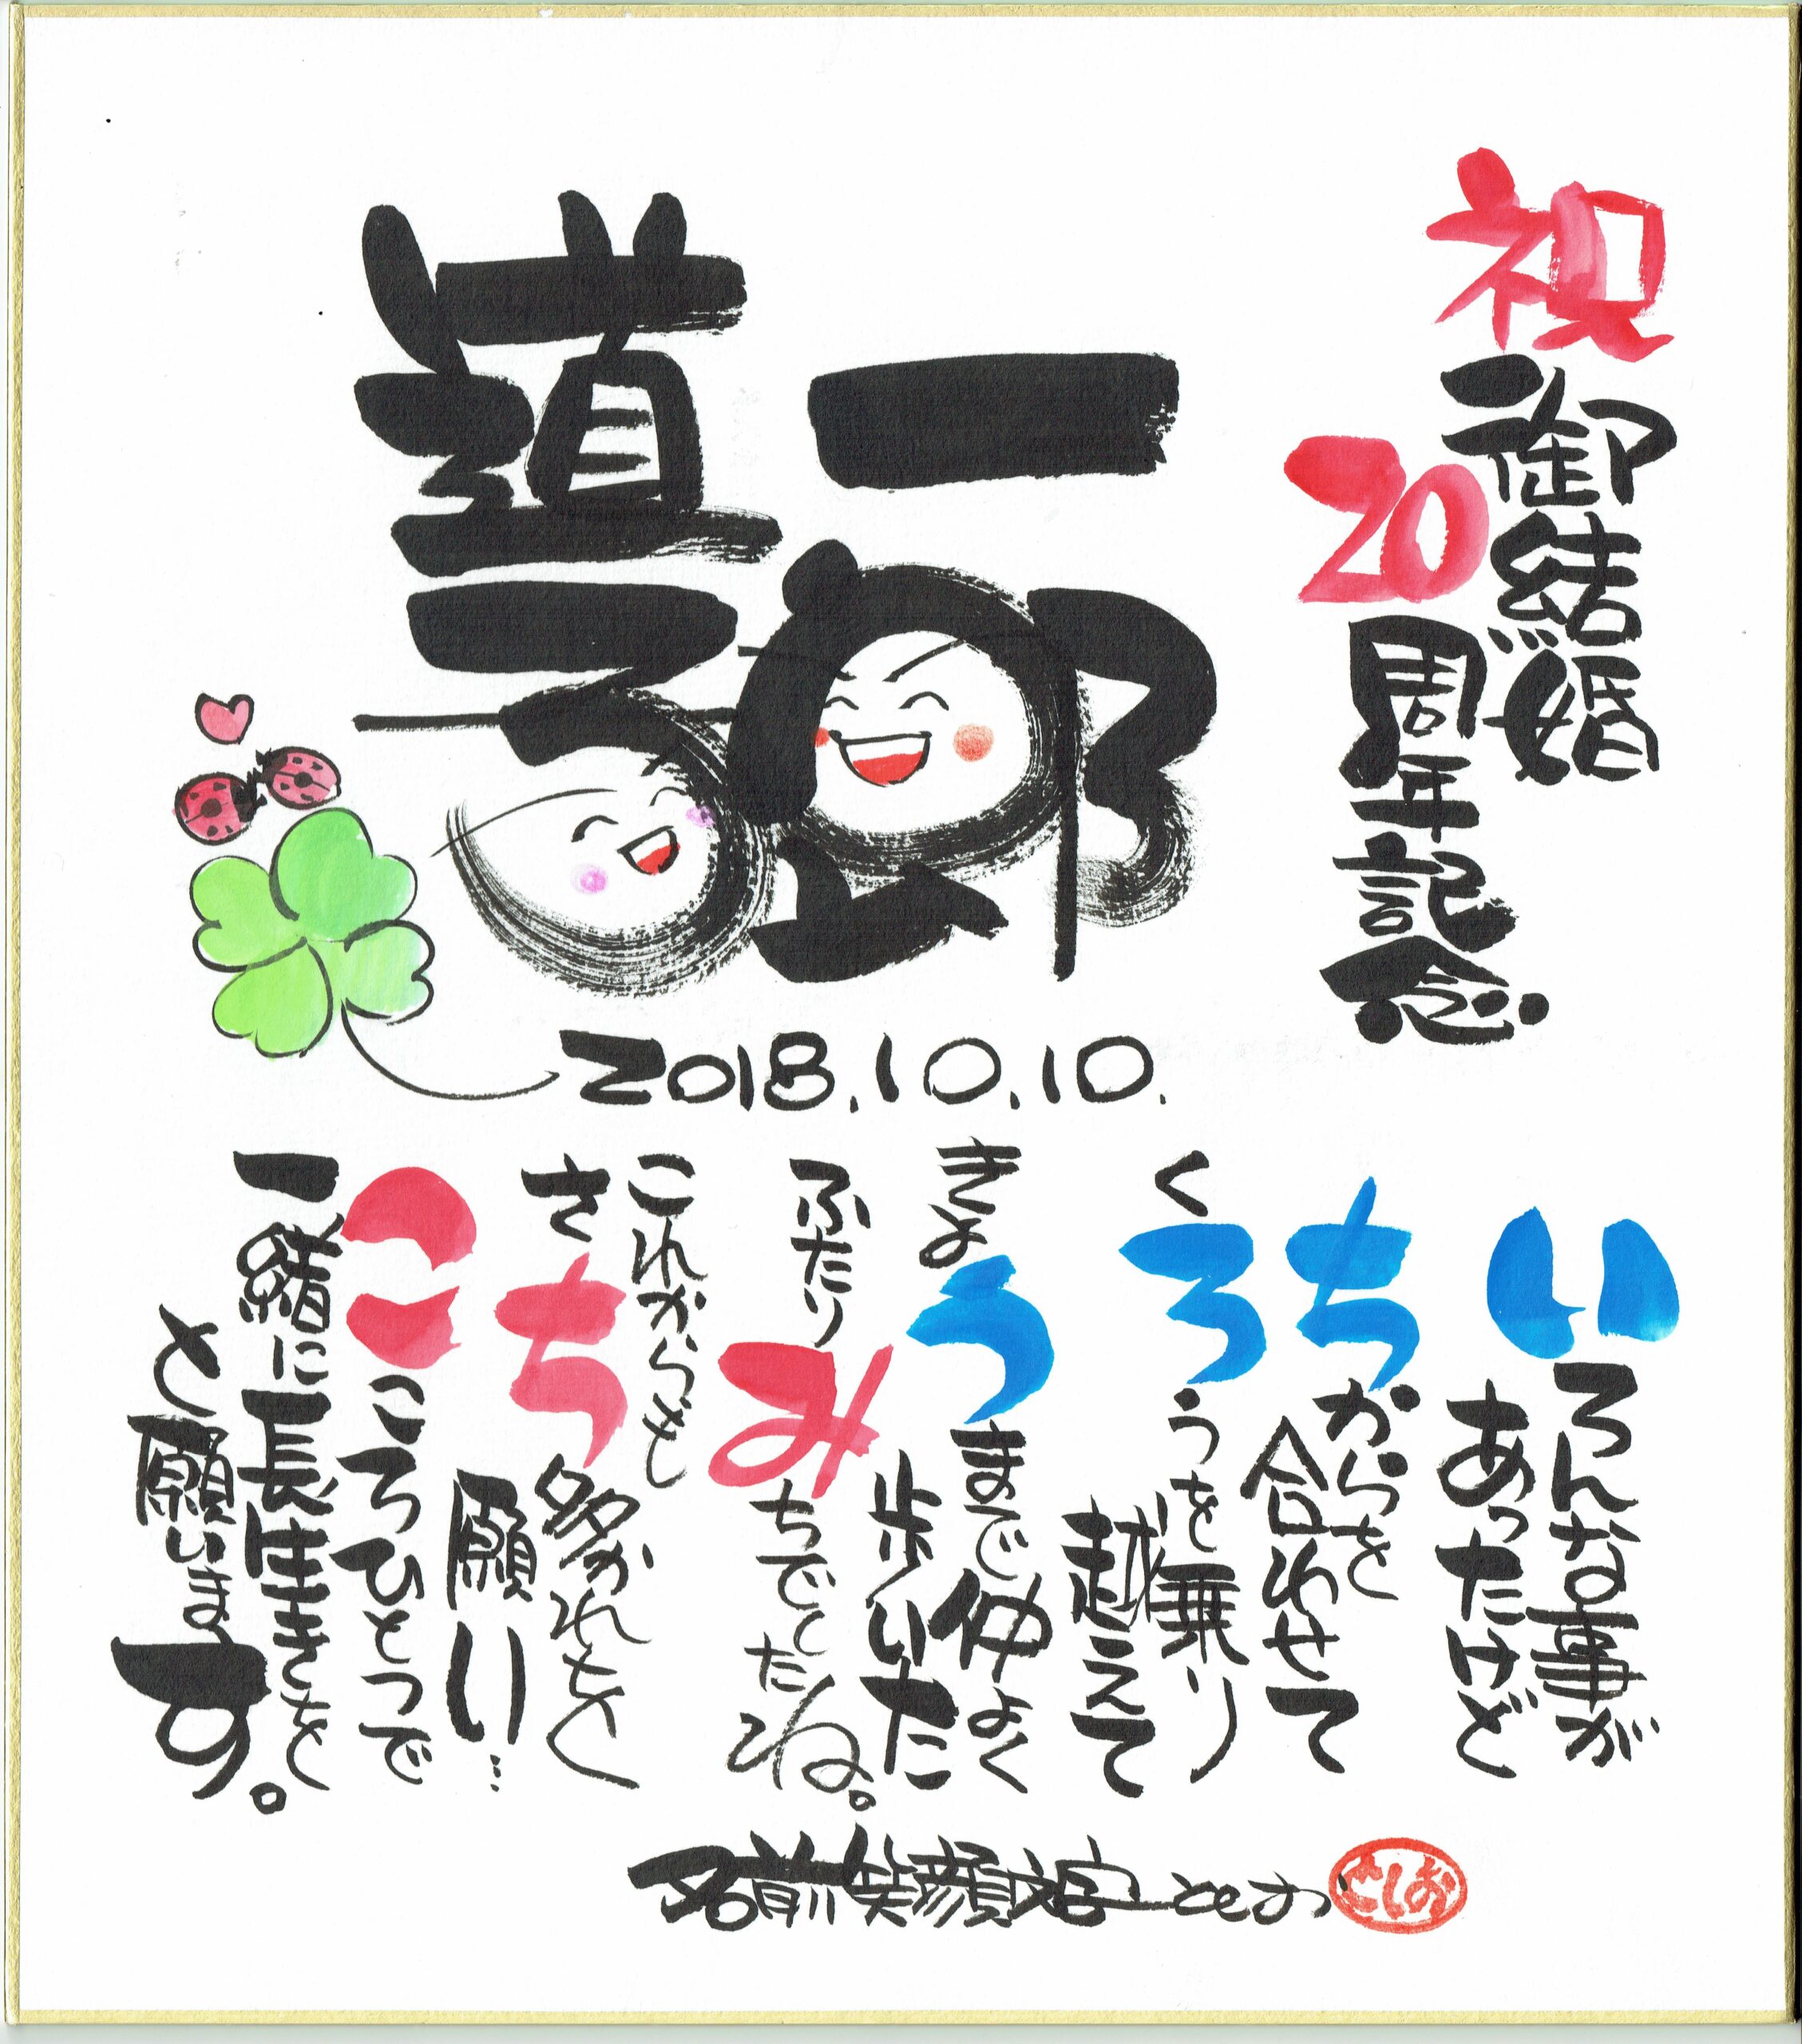 祝御結婚
20周年記念
一郎
道子
2018.10.10.
いろんな事が
あったけど
ちからを
合わせて
くろうを乗り
越えて
きょうまで仲よく
歩いた
ふたりみちでしたね。
これからも
さち多かれと
願い…
こころひとつで
一緒に長生きを
と願います。
名前笑顔文字 としお
としお